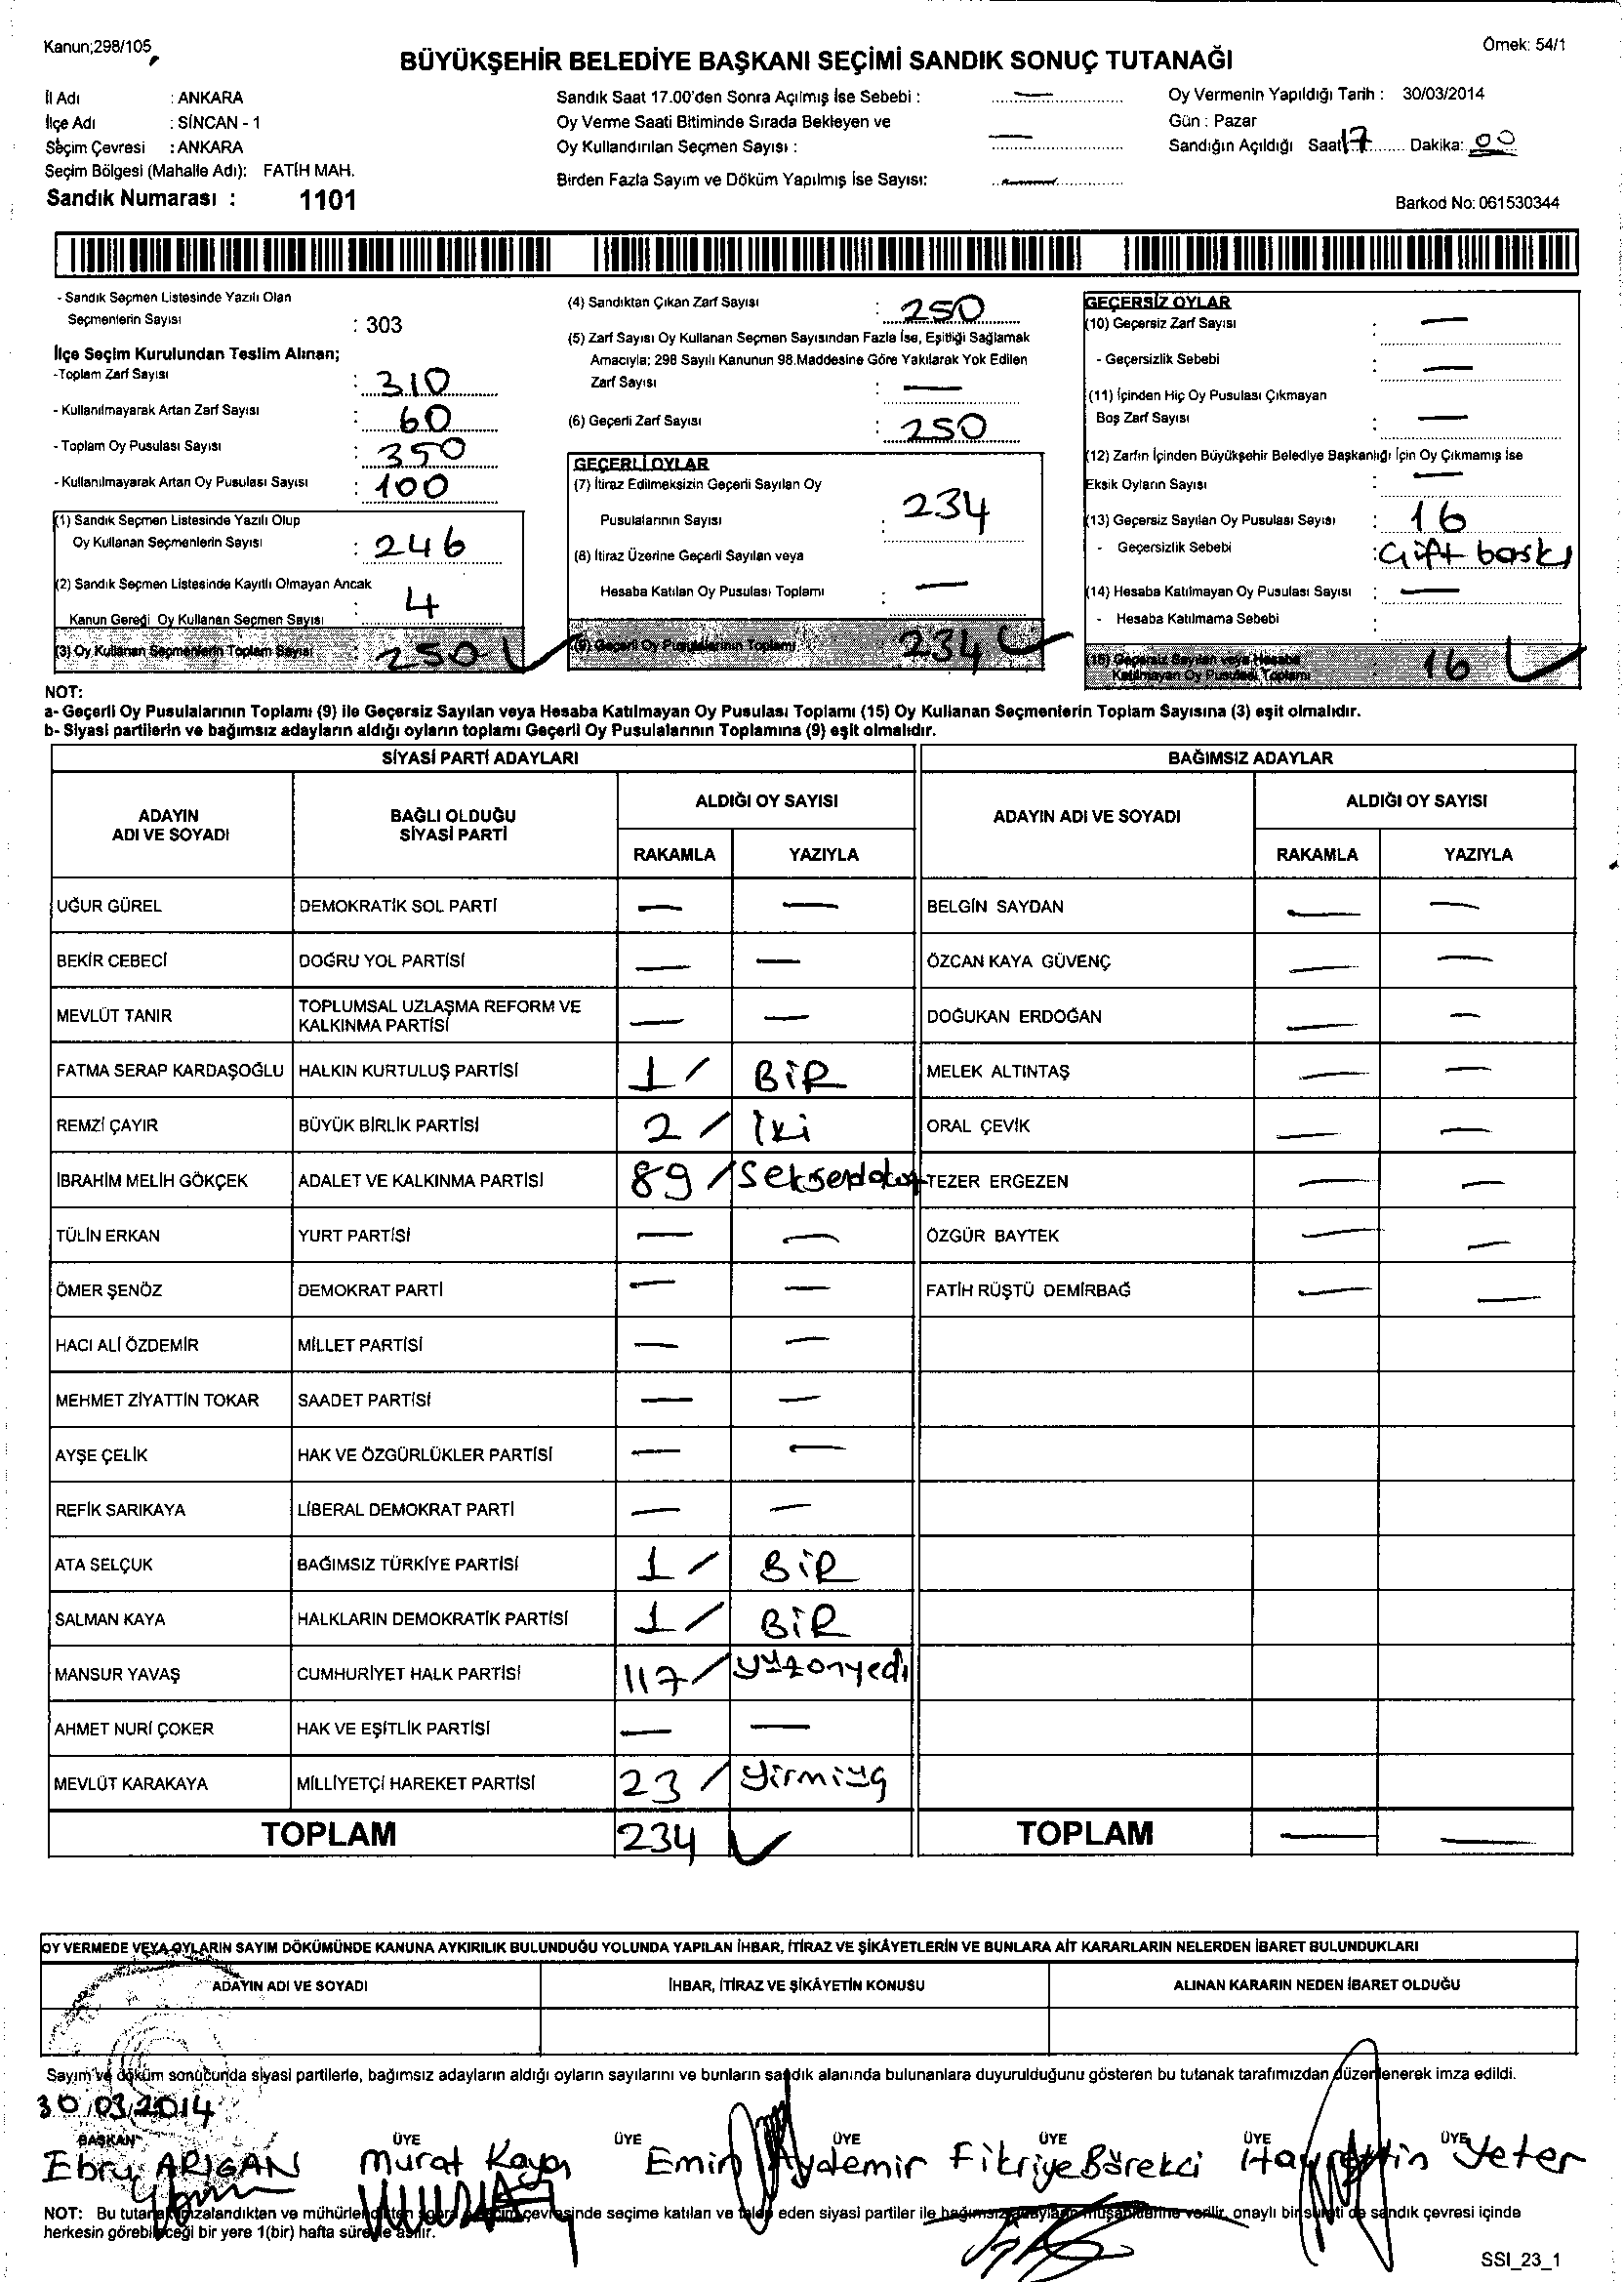 Kanun;298/105
Örnek: 54/1
BÜYÜKŞEHİR BELEDİYE BAŞKANI SEÇİMİ SANDIK SONUÇ TUTANAĞI
İl Adı : ANKARA
İlçe Adı : SİNCAN - 1
Seçim Çevresi : ANKARA
Seçim Bölgesi (Mahalle Adı): FATİH MAH.
Sandık Numarası : 1101
Sandık Saat 17.00'den Sonra Açılmış İse Sebebi : —
Oy Verme Saati Bitiminde Sırada Bekleyen ve
Oy Kullandırılan Seçmen Sayısı : —
Birden Fazla Sayım ve Döküm Yapılmış İse Sayısı: —
Oy Vermenin Yapıldığı Tarih : 30/03/2014
Gün : Pazar
Sandığın Açıldığı Saat 17 Dakika: 00
Barkod No: 061530344
- Sandık Seçmen Listesinde Yazılı Olan
Seçmenlerin Sayısı : 303
İlçe Seçim Kurulundan Teslim Alınan;
-Toplam Zarf Sayısı : 310
- Kullanılmayarak Artan Zarf Sayısı : 60
- Toplam Oy Pusulası Sayısı : 350
- Kullanılmayarak Artan Oy Pusulası Sayısı : 100
(1) Sandık Seçmen Listesinde Yazılı Olup
Oy Kullanan Seçmenlerin Sayısı : 246
(2) Sandık Seçmen Listesinde Kayıtlı Olmayan Ancak
Kanun Gereği Oy Kullanan Seçmen Sayısı : 4
(3) Oy Kullanan Seçmenlerin Toplam Sayısı : 250
(4) Sandıktan Çıkan Zarf Sayısı : 250
(5) Zarf Sayısı Oy Kullanan Seçmen Sayısından Fazla İse, Eşitliği Sağlamak
Amacıyla; 298 Sayılı Kanunun 98.Maddesine Göre Yakılarak Yok Edilen
Zarf Sayısı : —
(6) Geçerli Zarf Sayısı : 250
GEÇERLİ OYLAR
(7) İtiraz Edilmeksizin Geçerli Sayılan Oy
Pusulalarının Sayısı : 234
(8) İtiraz Üzerine Geçerli Sayılan veya
Hesaba Katılan Oy Pusulası Toplamı : —
(9) Geçerli Oy Pusulalarının Toplamı : 234
GEÇERSİZ OYLAR
(10) Geçersiz Zarf Sayısı : —
- Geçersizlik Sebebi : —
(11) İçinden Hiç Oy Pusulası Çıkmayan
Boş Zarf Sayısı : —
(12) Zarfın İçinden Büyükşehir Belediye Başkanlığı İçin Oy Çıkmamış İse
Eksik Oyların Sayısı : —
(13) Geçersiz Sayılan Oy Pusulası Sayısı : 16
- Geçersizlik Sebebi : Çift baskı
(14) Hesaba Katılmayan Oy Pusulası Sayısı : —
- Hesaba Katılmama Sebebi :
(15) Geçersiz Sayılan veya Hesaba
Katılmayan Oy Pusulası Toplamı : 16
NOT:
a- Geçerli Oy Pusulalarının Toplamı (9) ile Geçersiz Sayılan veya Hesaba Katılmayan Oy Pusulası Toplamı (15) Oy Kullanan Seçmenlerin Toplam Sayısına (3) eşit olmalıdır.
b- Siyasi partilerin ve bağımsız adayların aldığı oyların toplamı Geçerli Oy Pusulalarının Toplamına (9) eşit olmalıdır.
SİYASİ PARTİ ADAYLARI
ADAYIN ADI VE SOYADI BAĞLI OLDUĞU SİYASİ PARTİ ALDIĞI OY SAYISI
RAKAMLA YAZIYLA
UĞUR GÜREL DEMOKRATİK SOL PARTİ — —
BEKİR CEBECİ DOĞRU YOL PARTİSİ — —
MEVLÜT TANIR TOPLUMSAL UZLAŞMA REFORM VE KALKINMA PARTİSİ — —
FATMA SERAP KARDAŞOĞLU HALKIN KURTULUŞ PARTİSİ 1 / BİR
REMZİ ÇAYIR BÜYÜK BİRLİK PARTİSİ 2 / İki
İBRAHİM MELİH GÖKÇEK ADALET VE KALKINMA PARTİSİ 89 / Seksendokuz
TÜLİN ERKAN YURT PARTİSİ — —
ÖMER ŞENÖZ DEMOKRAT PARTİ — —
HACI ALİ ÖZDEMİR MİLLET PARTİSİ — —
MEHMET ZİYATTİN TOKAR SAADET PARTİSİ — —
AYŞE ÇELİK HAK VE ÖZGÜRLÜKLER PARTİSİ — —
REFİK SARIKAYA LİBERAL DEMOKRAT PARTİ — —
ATA SELÇUK BAĞIMSIZ TÜRKİYE PARTİSİ 1 / BİR
SALMAN KAYA HALKLARIN DEMOKRATİK PARTİSİ 1 / BİR
MANSUR YAVAŞ CUMHURİYET HALK PARTİSİ 117 / yüzonyedi
AHMET NURİ ÇOKER HAK VE EŞİTLİK PARTİSİ — —
MEVLÜT KARAKAYA MİLLİYETÇİ HAREKET PARTİSİ 23 / yirmiüç
TOPLAM 234
BAĞIMSIZ ADAYLAR
ADAYIN ADI VE SOYADI ALDIĞI OY SAYISI
RAKAMLA YAZIYLA
BELGİN SAYDAN — —
ÖZCAN KAYA GÜVENÇ — —
DOĞUKAN ERDOĞAN — —
MELEK ALTINTAŞ — —
ORAL ÇEVİK — —
TEZER ERGEZEN — —
ÖZGÜR BAYTEK — —
FATİH RÜŞTÜ DEMİRBAĞ — —
TOPLAM — —
OY VERMEDE VEYA OYLARIN SAYIM DÖKÜMÜNDE KANUNA AYKIRILIK BULUNDUĞU YOLUNDA YAPILAN İHBAR, İTİRAZ VE ŞİKÂYETLERİN VE BUNLARA AİT KARARLARIN NELERDEN İBARET BULUNDUKLARI
ADAYIN ADI VE SOYADI İHBAR, İTİRAZ VE ŞİKÂYETİN KONUSU ALINAN KARARIN NEDEN İBARET OLDUĞU
Sayım ve döküm sonucunda siyasi partilerle, bağımsız adayların aldığı oyların sayılarını ve bunların sandık alanında bulunanlara duyurulduğunu gösteren bu tutanak tarafımızdan düzenlenerek imza edildi.
30.03.2014
BAŞKAN ÜYE ÜYE ÜYE ÜYE ÜYE ÜYE
Ebru ARIGAN Murat Kaya Emin Aydemir Fikriye Börekci Hayrettin Yeter
NOT: Bu tutanak imzalandıktan ve mühürlendikten sonra seçim çevresinde seçime katılan ve talep eden siyasi partiler ile bağımsız adayların müşahitlerine verilir, onaylı bir sureti de sandık çevresi içinde
herkesin görebileceği bir yere 1(bir) hafta süreyle asılır.
SSI_23_1